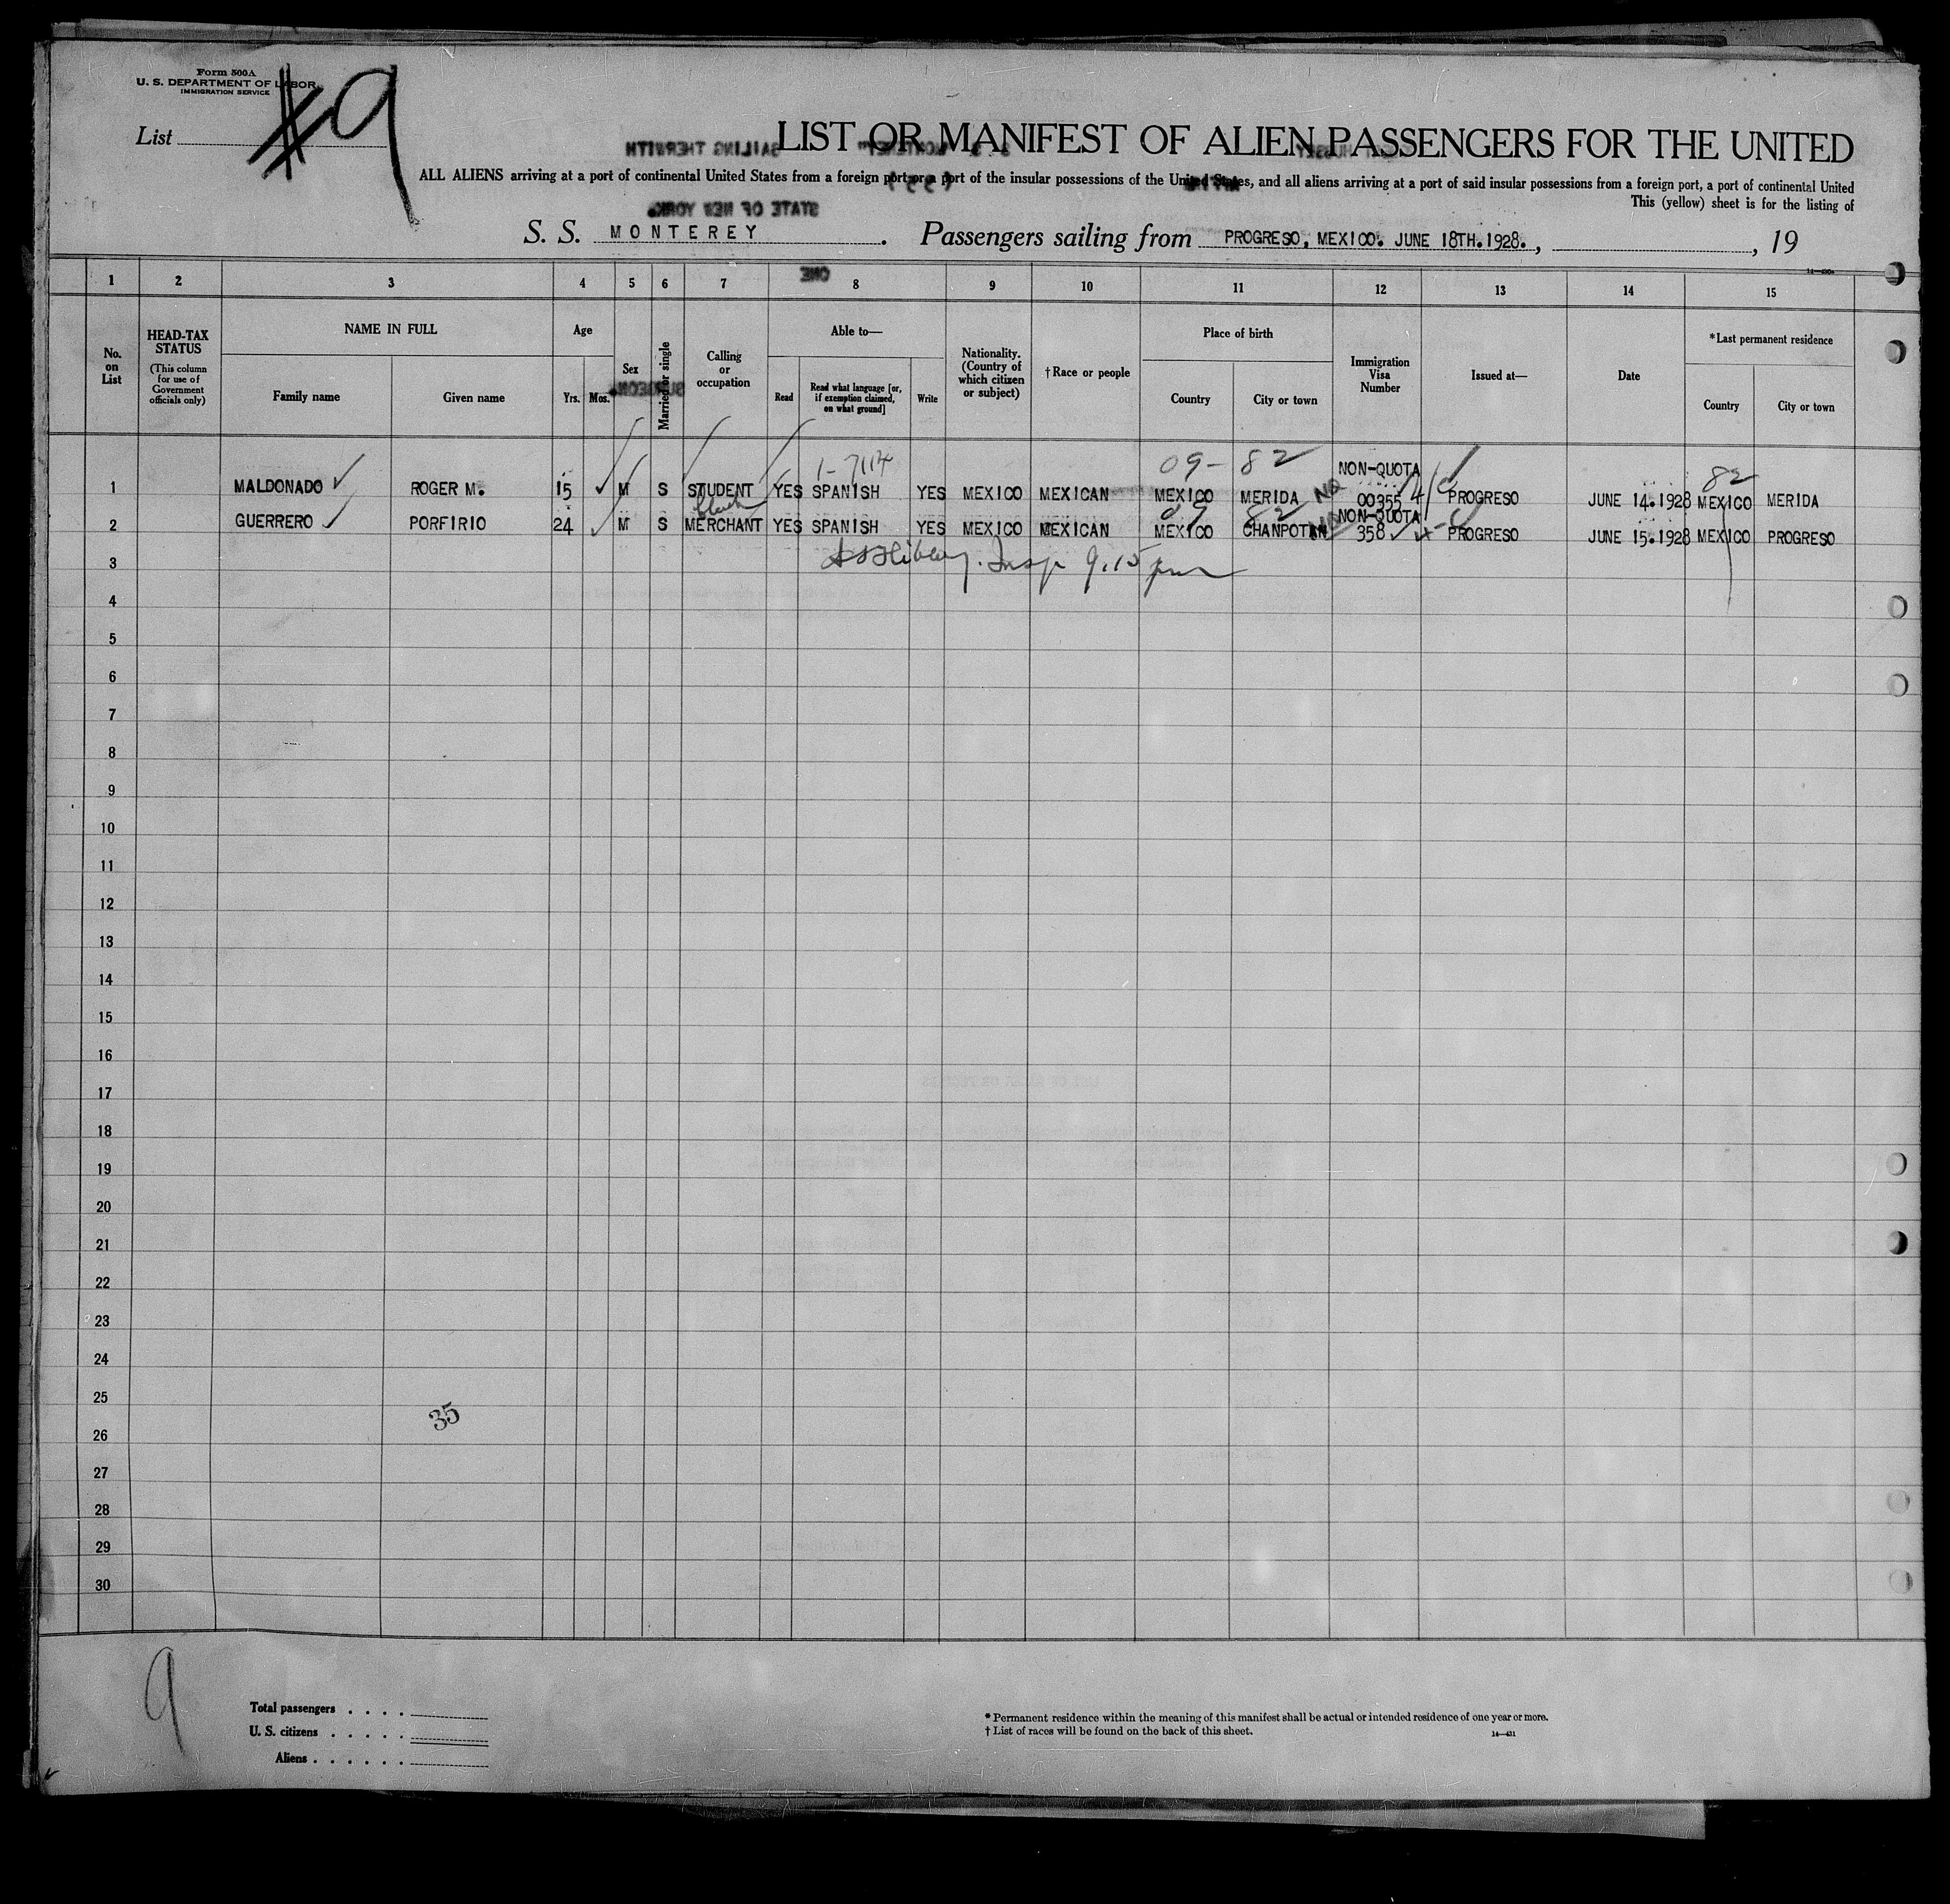 Form 500A
U. S. DEPARTMENT OF LABOR
IMMIGRATION SERVICE
List #9
LIST OR MANIFEST OF ALIEN PASSENGERS FOR THE UNITED
ALL ALIENS arriving at a port of continental United States from a foreign port or a port of the insular possessions of the United States, and all aliens arriving at a port of said insular possessions from a foreign port, a port of continental United
This (yellow) sheet is for the listing of
STATE OF NEW YORK
S. S. MONTEREY . Passengers sailing from PROGRESO, MEXICO. JUNE 18TH.1928. , , 19
1 2 3 4 5 6 7 8 9 10 11 12 13 14 15
No. on List
HEAD-TAX STATUS
(This column for use of Government officials only)
NAME IN FULL
Family name Given name
Age
Yrs. Mos.
Sex
Married or single
Calling or occupation
Able to—
Read
Read what language [or, if exemption claimed, on what ground]
Write
Nationality. (Country of which citizen or subject)
†Race or people
Place of birth
Country City or town
Immigration Visa Number
Issued at—
Date
*Last permanent residence
Country City or town
09- 82 NON-QUOTA 82
1 MALDONADO ROGER M. 15 M S STUDENT YES SPANISH YES MEXICO MEXICAN MEXICO MERIDA 00355 PROGRESO JUNE 14.1928 MEXICO MERIDA
09 82 NON-QUOTA
2 GUERRERO PORFIRIO 24 M S MERCHANT YES SPANISH YES MEXICO MEXICAN MEXICO CHANPOTAN 358 PROGRESO JUNE 15.1928 MEXICO PROGRESO
3 Insp 9.15 pm
4
5
6
7
8
9
10
11
12
13
14
15
16
17
18
19
20
21
22
23
24
25
35
26
27
28
29
30
9
Total passengers . . . .
U. S. citizens . . . . .
Aliens . . . . . .
* Permanent residence within the meaning of this manifest shall be actual or intended residence of one year or more.
† List of races will be found on the back of this sheet.
14—431